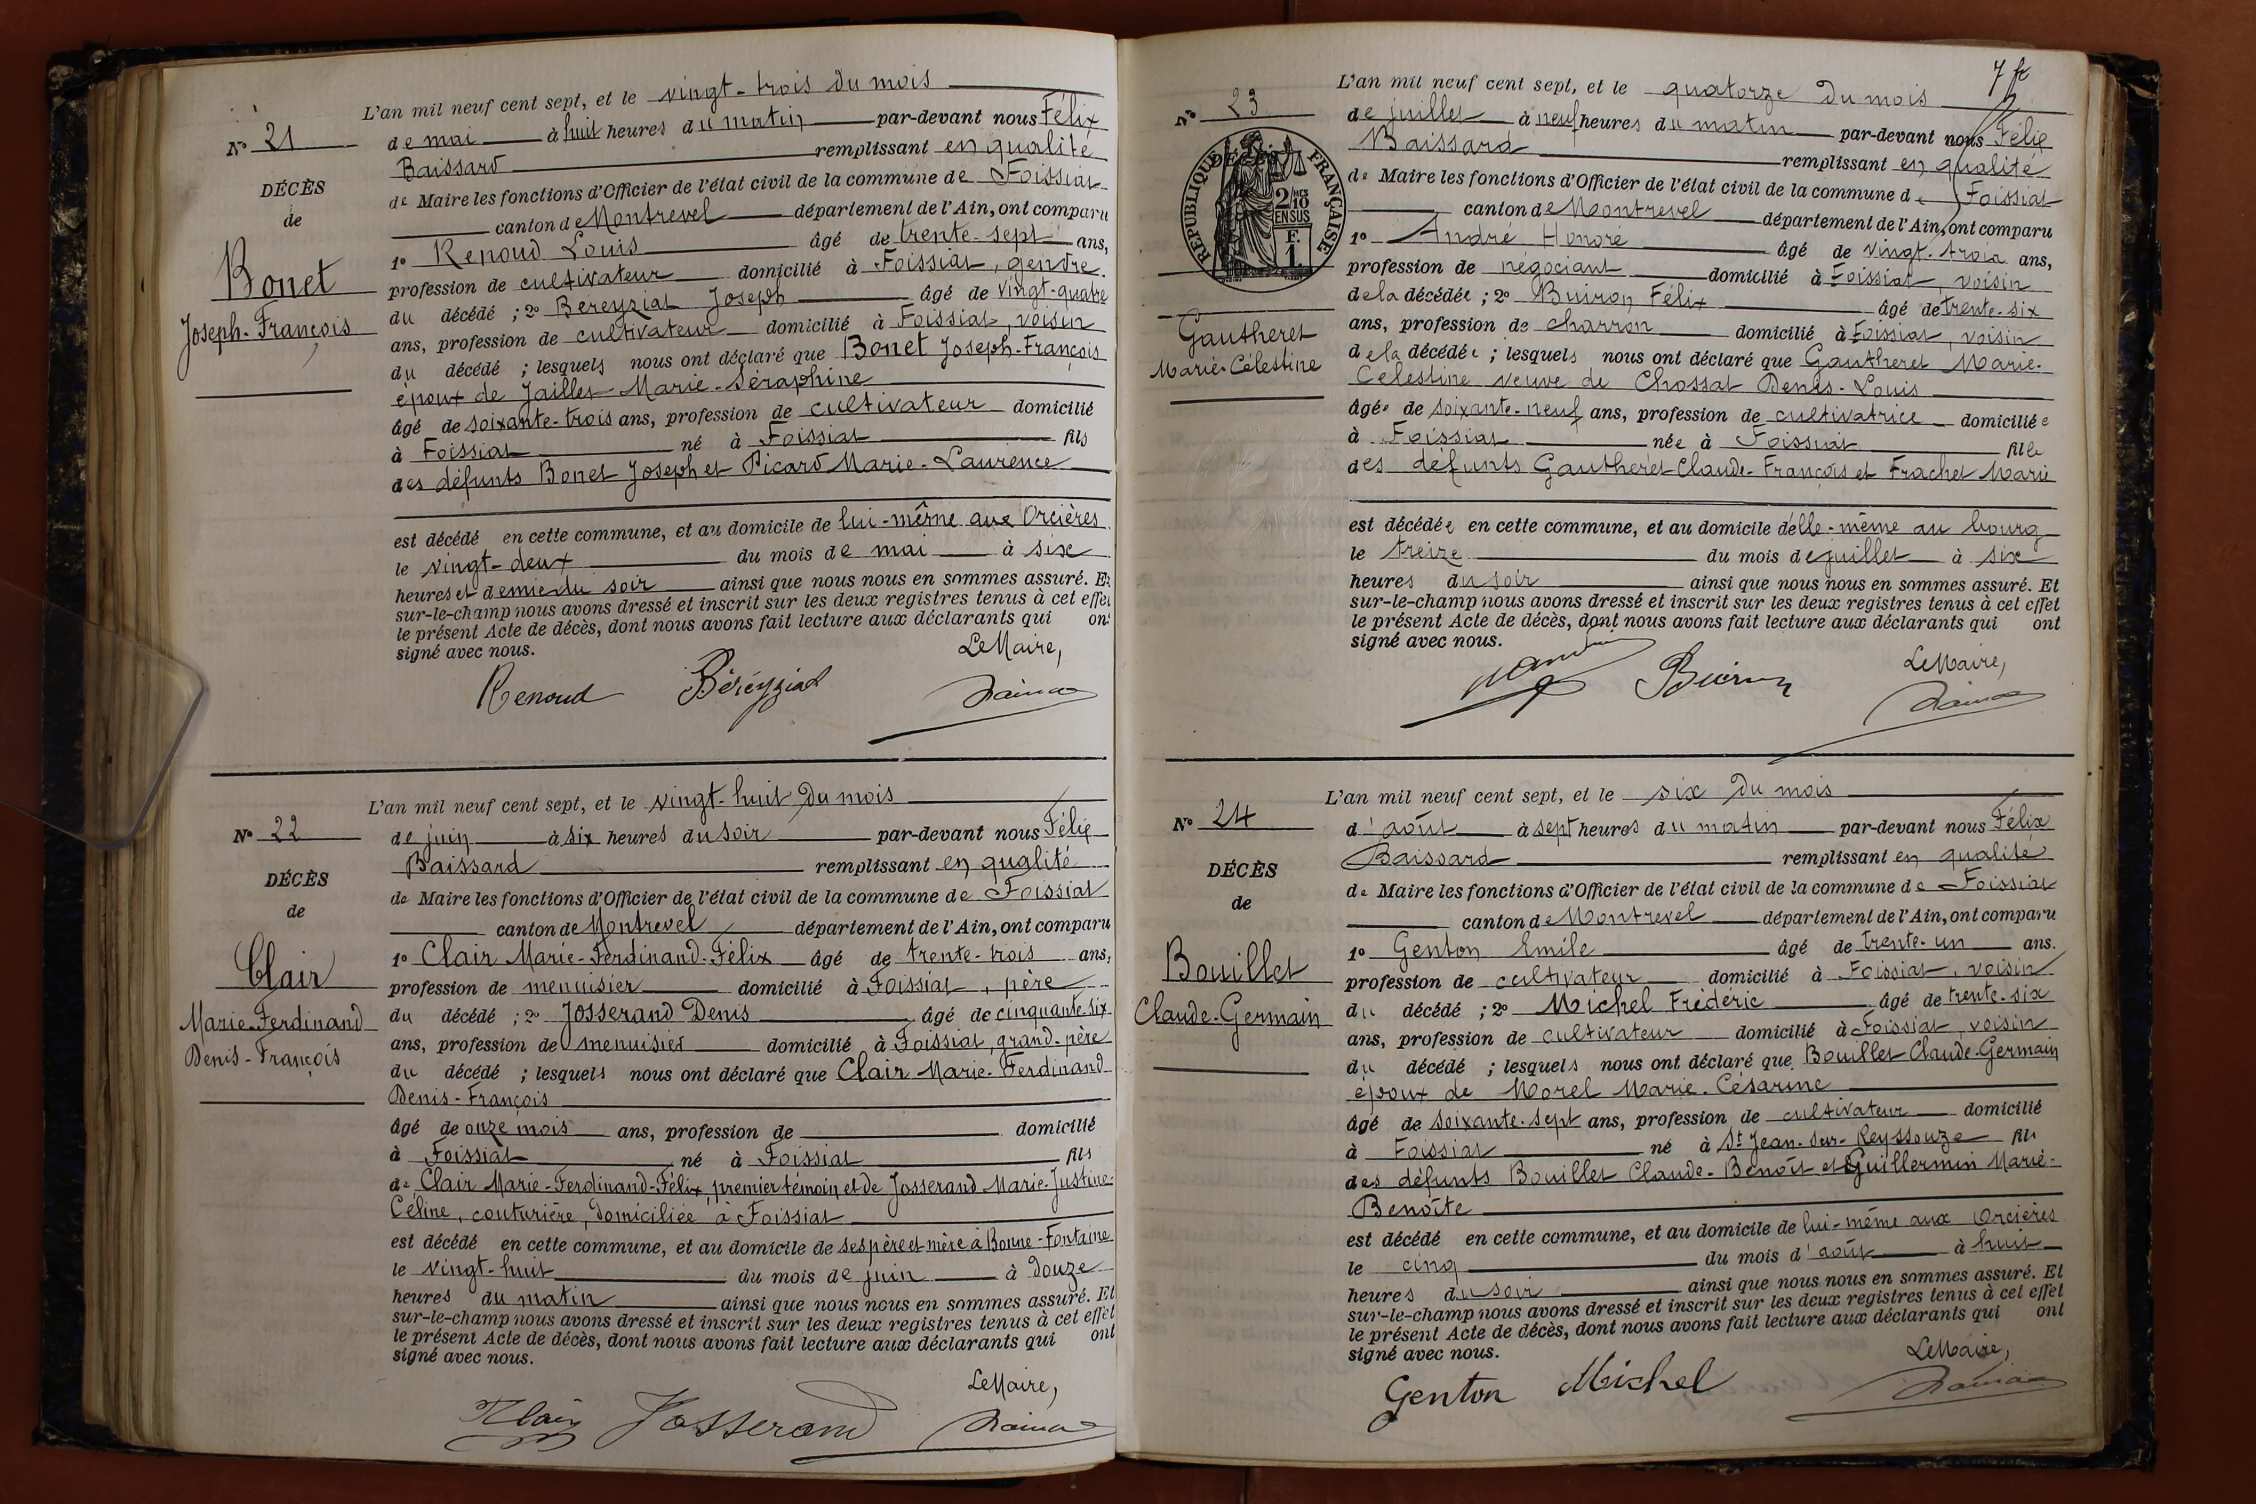 L'an mil neuf cent sept, et le vingt-trois du mois
N° 21
de mai à huit heures du matin par-devant nous Félix
Baissard remplissant en qualité
DÉCÈS
de Maire les fonctions d'Officier de l'état civil de la commune de Foissiat
de
canton de Montrevel département de l'Ain, ont comparu
Bonet
1° Renoud Louis âgé de trente-sept ans,
profession de cultivateur domicilié à Foissiat, gendre
Joseph-François
du décédé ; 2° Bereyziat Joseph âgé de vingt-quatre
ans, profession de cultivateur domicilié à Foissiat, voisin
du décédé ; lesquels nous ont déclaré que Bonet Joseph-François
époux de Jaillet Marie-Séraphine
âgé de soixante-trois ans, profession de cultivateur domicilié
à Foissiat né à Foissiat fils
des défunts Bonet Joseph et Picard Marie-Laurence
est décédé en cette commune, et au domicile de lui-même aux Orcières
le vingt-deux du mois de mai à six
heures et demie du soir ainsi que nous nous en sommes assuré. Et
sur-le-champ nous avons dressé et inscrit sur les deux registres tenus à cet effet
le présent Acte de décès, dont nous avons fait lecture aux déclarants qui ont
signé avec nous.
Le Maire,
Renoud Béréyziat
L'an mil neuf cent sept, et le vingt-huit du mois
N° 22
de juin à six heures du soir par-devant nous Félix
Baissard remplissant en qualité
DÉCÈS
de Maire les fonctions d'Officier de l'état civil de la commune de Foissiat
de
canton de Montrevel département de l'Ain, ont comparu
Clair
1° Clair Marie-Ferdinand-Félix âgé de trente-trois ans,
profession de menuisier domicilié à Foissiat, père
Marie-Ferdinand
du décédé ; 2° Josserand Denis âgé de cinquante-six
Denis-François
ans, profession de menuisier domicilié à Foissiat, grand-père
du décédé ; lesquels nous ont déclaré que Clair Marie-Ferdinand
Denis-François
âgé de onze mois ans, profession de domicilié
à Foissiat né à Foissiat fils
de Clair Marie-Ferdinand-Félix, premier témoin et de Josserand Marie-Justine-
Céline, couturière, domiciliée à Foissiat
est décédé en cette commune, et au domicile de ses père et mère à Bonne-Fontaine
le vingt-huit du mois de juin à douze
heures du matin ainsi que nous nous en sommes assuré. Et
sur-le-champ nous avons dressé et inscrit sur les deux registres tenus à cet effet
le présent Acte de décès, dont nous avons fait lecture aux déclarants qui ont
signé avec nous.
Le Maire,
Clair Josserand
L'an mil neuf cent sept, et le quatorze du mois
N° 23
de juillet à neuf heures du matin par-devant nous Félix
Baissard remplissant en qualité
DÉCÈS
RÉPUBLIQUE FRANÇAISE
2/10 EN SUS
F. 1
de Maire les fonctions d'Officier de l'état civil de la commune de Foissiat
canton de Montrevel département de l'Ain, ont comparu
1° André Honoré âgé de vingt-trois ans,
profession de négociant domicilié à Foissiat, voisin
de la décédée ; 2° Buiron Félix âgé de trente-six
Gautheret
ans, profession de charron domicilié à Foissiat, voisin
Marie-Célestine
de la décédée ; lesquels nous ont déclaré que Gautheret Marie-
Célestine veuve de Chossat Denis-Louis
âgée de soixante-neuf ans, profession de cultivatrice domiciliée
à Foissiat née à Foissiat fille
des défunts Gautheret Claude-François et Frachet Marie
est décédée en cette commune, et au domicile d'elle-même au bourg
le treize du mois de juillet à six
heures du soir ainsi que nous nous en sommes assuré. Et
sur-le-champ nous avons dressé et inscrit sur les deux registres tenus à cet effet
le présent Acte de décès, dont nous avons fait lecture aux déclarants qui ont
signé avec nous.
Le Maire,
Buiron
L'an mil neuf cent sept, et le six du mois
N° 24
d'août à sept heures du matin par-devant nous Félix
Baissard remplissant en qualité
DÉCÈS
de Maire les fonctions d'Officier de l'état civil de la commune de Foissiat
de
canton de Montrevel département de l'Ain, ont comparu
Bouillet
1° Genton Emile âgé de trente-un ans.
profession de cultivateur domicilié à Foissiat, voisin
Claude-Germain
du décédé ; 2° Michel Frédéric âgé de trente-six
ans, profession de cultivateur domicilié à Foissiat, voisin
du décédé ; lesquels nous ont déclaré que Bouillet Claude-Germain
époux de Morel Marie-Césarine
âgé de soixante-sept ans, profession de cultivateur domicilié
à Foissiat né à St Jean-sur-Reyssouze fils
des défunts Bouillet Claude-Benoît et Guillermin Marie-
Benoîte
est décédé en cette commune, et au domicile de lui-même aux Orcières
le cinq du mois d'août à huit
heures du soir ainsi que nous nous en sommes assuré. Et
sur-le-champ nous avons dressé et inscrit sur les deux registres tenus à cet effet
le présent Acte de décès, dont nous avons fait lecture aux déclarants qui ont
signé avec nous.
Le Maire,
Genton Michel